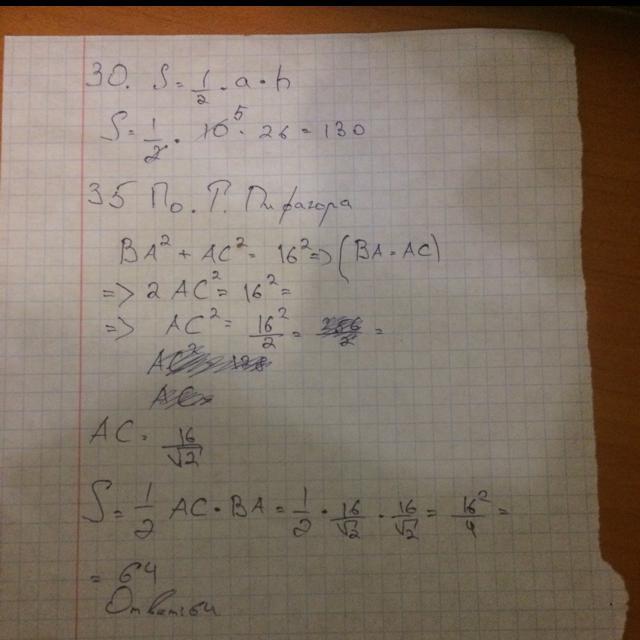 30. S = 1/2 · a · h
S = 1/2 · 10 5 · 26 = 130
35 По. Т. Пифагора
BA² + AC² = 16² => (BA = AC)
=> 2 AC² = 16² =
=> AC² = 16²/2 = 256/2 =
AC = 16/√2
S = 1/2 AC · BA = 1/2 · 16/√2 · 16/√2 = 16²/4 =
= 64